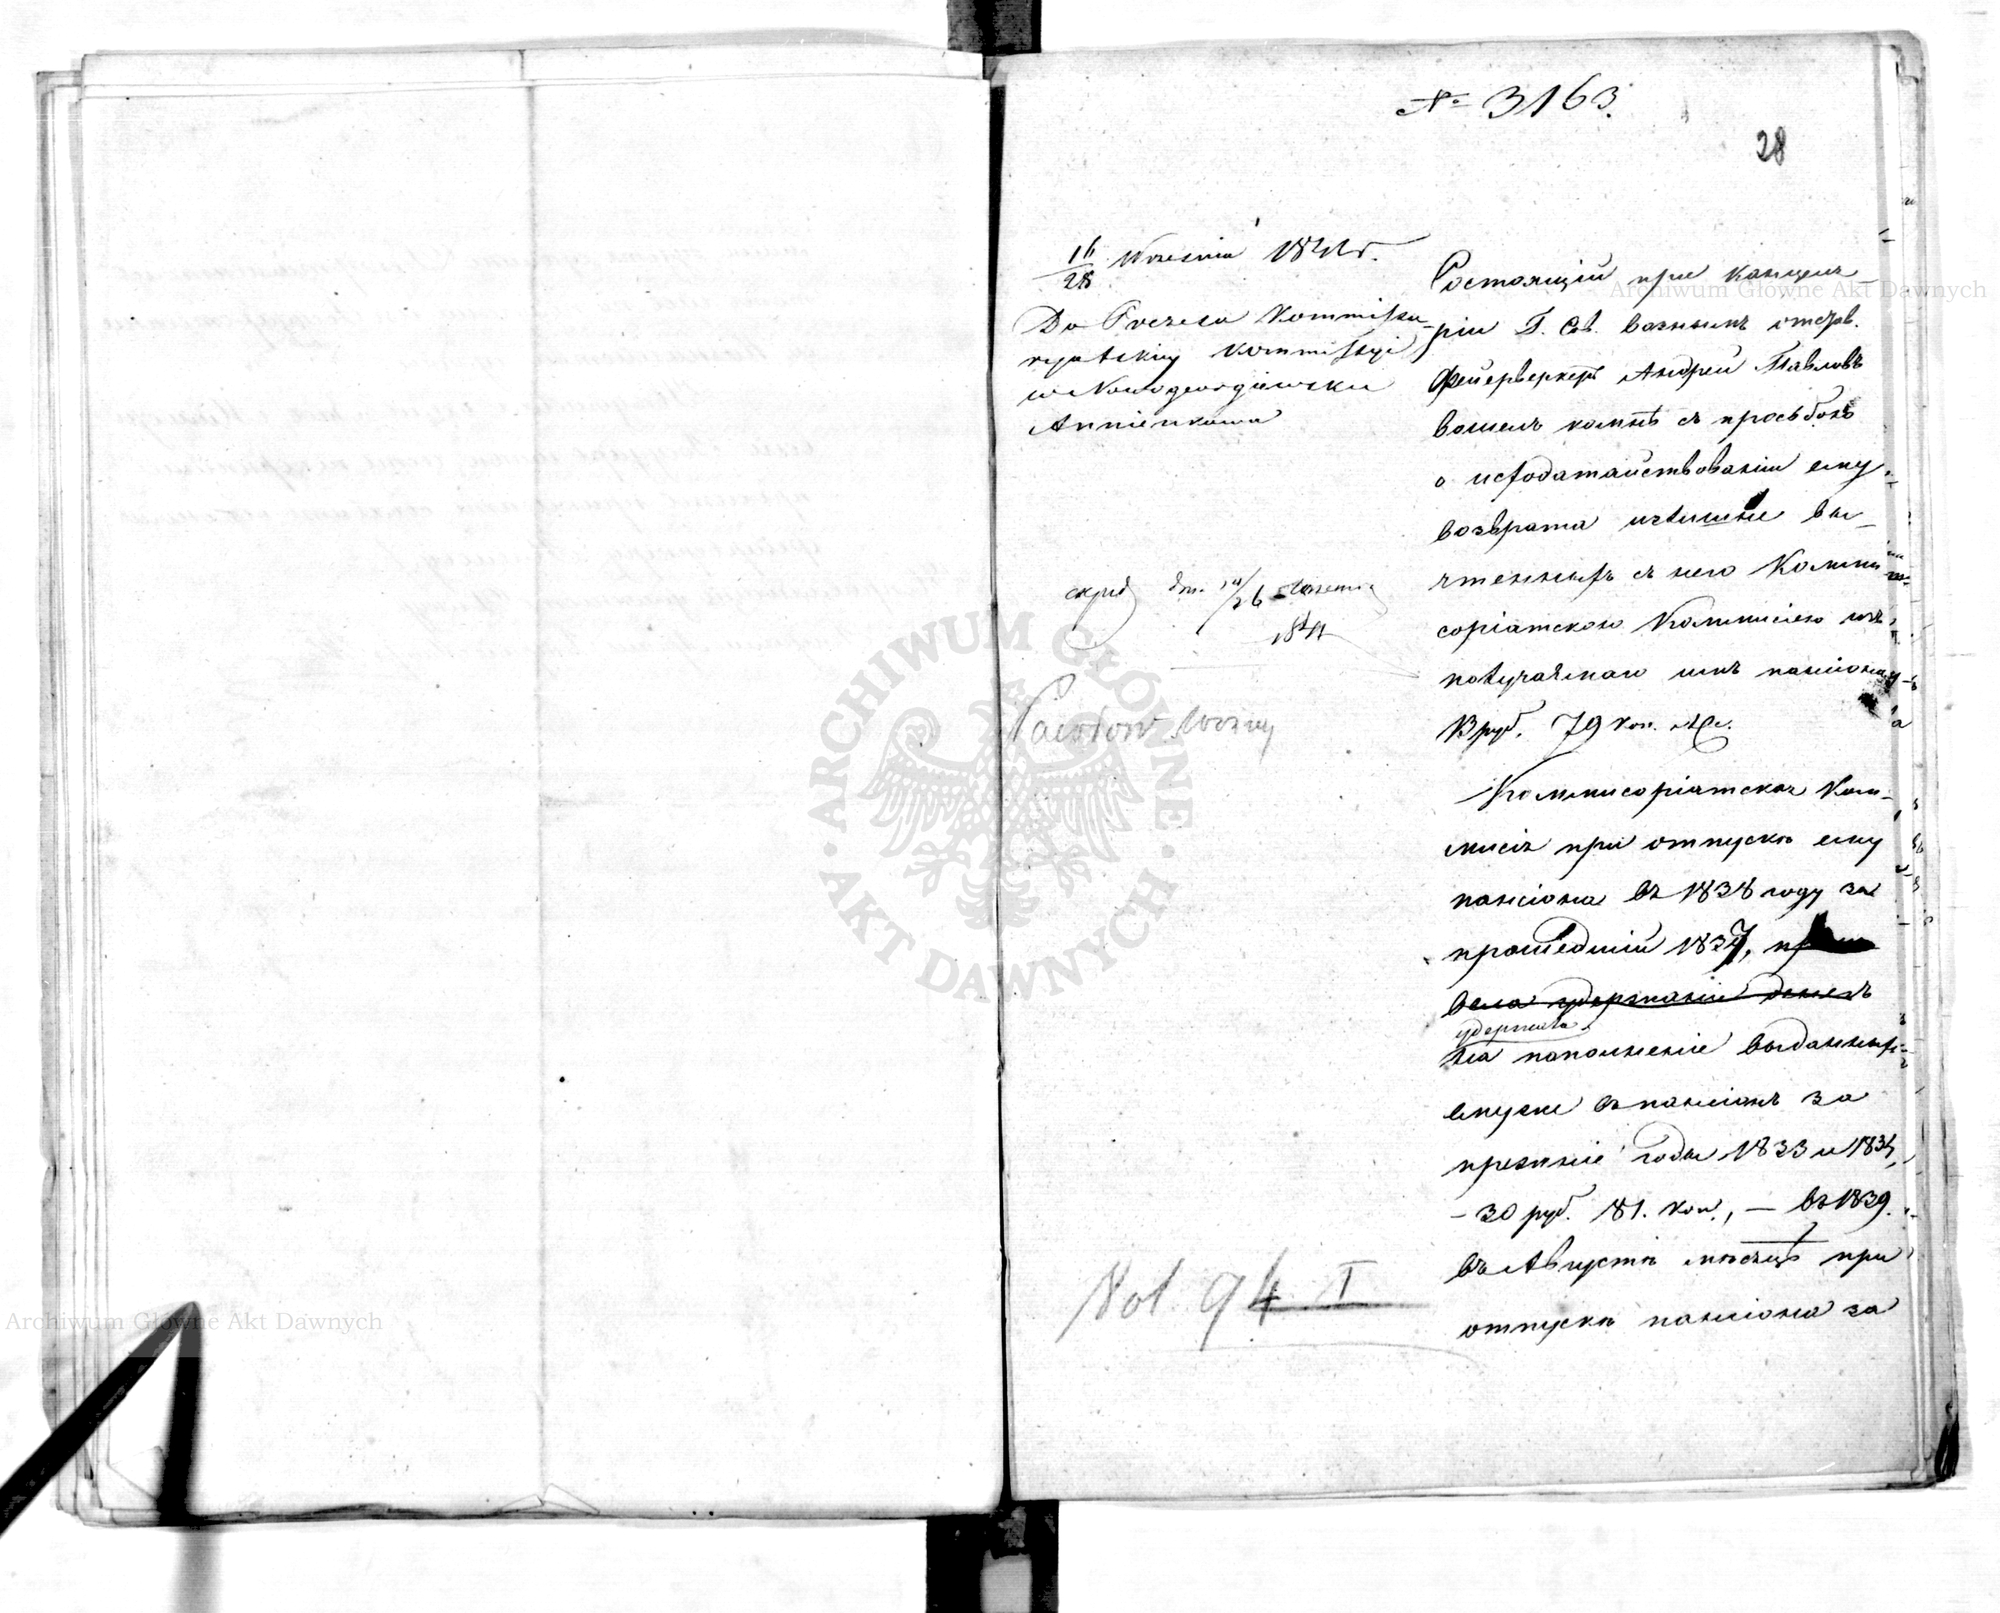 № 3163.
28
16/28 Września 1841 г.
Do Prezesa Kommissa-
ryatskiey Kommissyi
w Nowogeorgiewsku
Annienkowa
dn. 14/26 Września
1841
Pawłow woźny
Vol. 94 I
Состоящій при канцеля-
ріи Г. Сов. вознымъ отстав.
Фейерверкеръ Андрей Павловъ
вошелъ ко мнѣ съ просьбою
о исходатайствованіи ему
возврата излишне вы-
чтенныхъ съ него Комми-
соріатскою Коммисіею изъ
получаемаго имъ пансіона
руб. 79 коп. с.
Коммисоріатская Ком-
мисія при отпускѣ ему
пансіона въ 1838 году за
прошедшій 1837,
вела удержаніе денегъ
удержала
на пополненіе выданныхъ
ему въ пансіонъ за
прежніе годы 1833 и 1834,
– 30 руб. 81. коп., — въ 1839.
въ Августѣ мѣсяцѣ при
отпускѣ пансіона за
Archiwum Główne Akt Dawnych
ARCHIWUM GŁÓWNE • AKT DAWNYCH •
Archiwum Główne Akt Dawnych